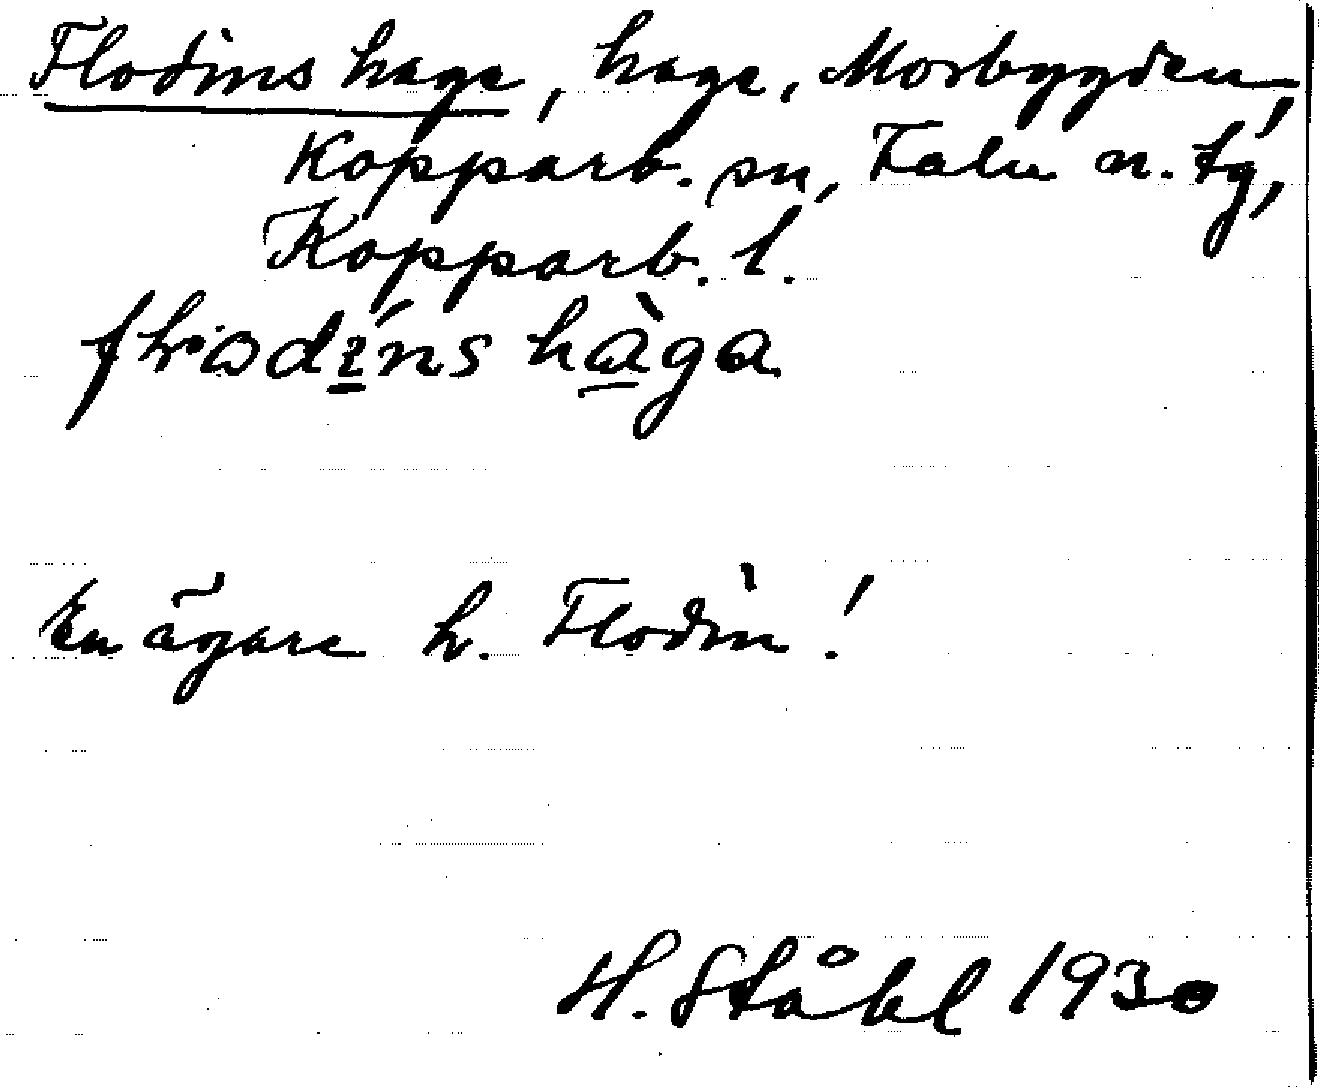 Flodins hage, hage, Morbygden,
Kopparb. sn, Falu n. tg,
Kopparb. l.
En ägare h. Flodin!
H. Ståhl 1930